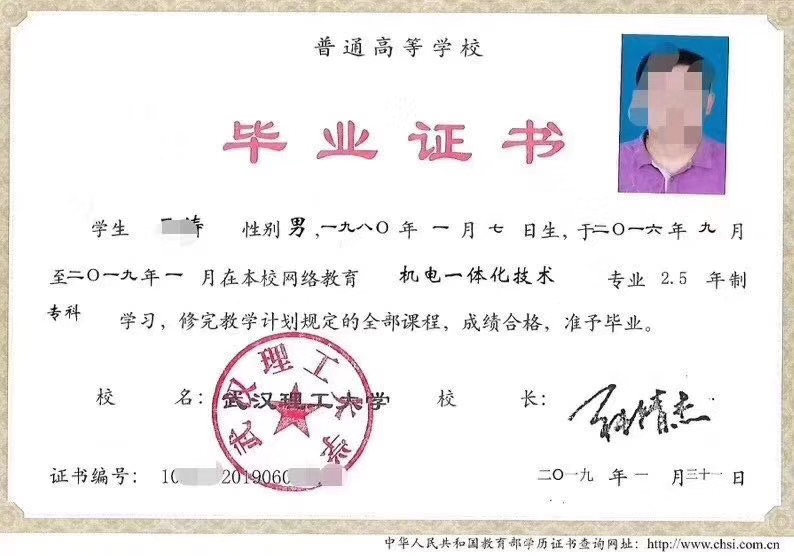 普通高等学校
毕业证书
学生 性别 男 ,一九八〇 年 一 月 七 日生，于二〇一六年 九 月
至二〇一九年 一 月在本校网络教育 机电一体化技术 专业 2.5 年制
专科 学习，修完教学计划规定的全部课程，成绩合格，准予毕业。
校 名：武汉理工大学 校 长：
武汉理工大学
证书编号：10 2019060 二〇一九 年 一 月 三十一 日
中华人民共和国教育部学历证书查询网址：http://www.chsi.com.cn